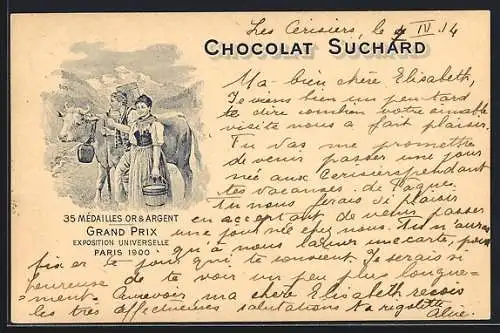 Les Cerisiers, le 9 IV. 14
CHOCOLAT SUCHARD
Ma bien chère Elisabeth,
Je viens bien un peu tard
te dire combien votre aimable
visite nous a fait plaisir.
Tu vas me promettre
de venir passer une jour
née aux Cerisiers pendant
tes vacances de Pâque.
Tu nous ferais si plaisir
en acceptant de venir passer
une journée chez nous. Tu n'auras
qu'à nous une carte, pour
fixer le jour qui te convient. Je serais si
heureuse de te voir un peu plus longue-
ment. Aurevoir ma chère Elisabeth reçois
les très affectueuses salutations ta
Aline.
35 MÉDAILLES OR & ARGENT
GRAND PRIX
EXPOSITION UNIVERSELLE
PARIS 1900